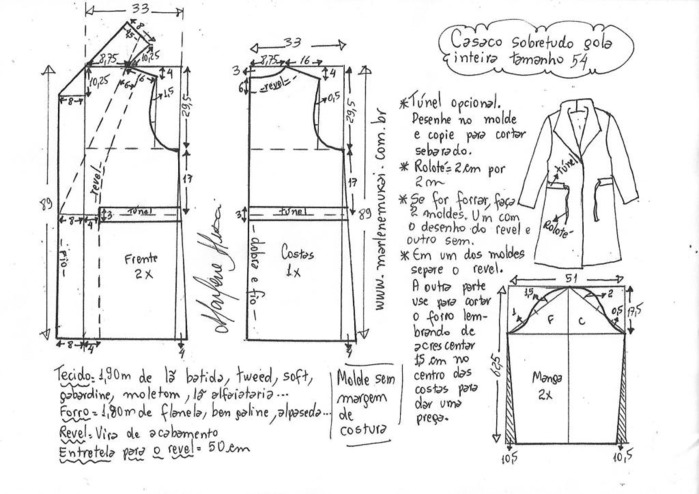 Casaco sobretudo gola
inteira tamanho 54
33
8
15
8,75
10,25
6
6
4
1,5
29,5
10,25
8
revel
17
89
8
4
3
túnel
fio
Frente
2x
8
4
4
Marlene Mukai
33
8,75
16
3
6
revel
4
0,5
29,5
17
3
túnel
89
dobra e fio
Costas
1x
4
www.marlenemukai.com.br
*Túnel opcional.
Desenhe no molde
e copie para cortar
sebarado.
*Rolotês 2 cm por
2m
*Se for forrar, faça
2 moldes. Um com
o desenho do revel e
outro sem.
*Em um dos moldes
separe o revel.
A outra parte
use para cortar
o forro lem-
brando de
acrescentar
15 cm no
centro das
costas para
dar uma
prega.
Túnel
Rolotê
51
1,5
2
1
F
C
0,5
17,5
67,5
Manga
2x
10,5
10,5
Tecido=1,90m de lã batida, tweed, soft,
gabardine, moletom, lã alfaiataria...
Forro=1,80m de flanela, bengaline, alpaseda...
Revel=Vira de acabamento
Entretela para o revel=50cm
Molde sem
margem
de
costura